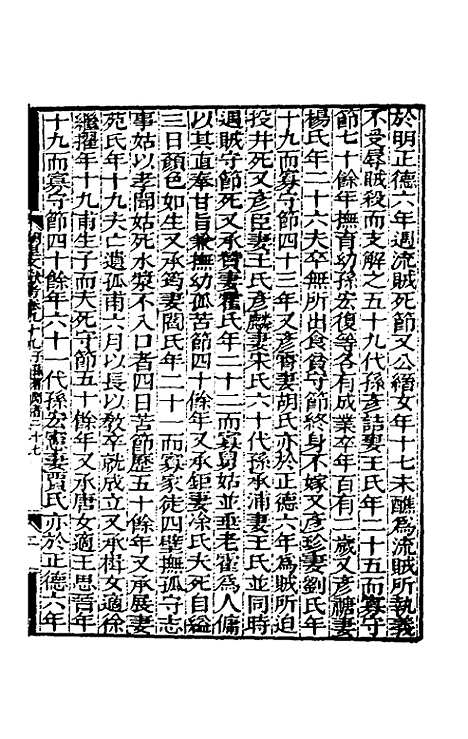 於明正德六年遇流賊死節又公縉女年十七未醮為流賊所執義
不受辱賊殺而支解之五十九代孫彥喆妻王氏年二十五而寡守
節七十餘年撫育幼孫宏復等各有成業卒年百有二歲又彥
楊氏年二十六夫卒無所出食貧守節終身不嫁又彥珍妻劉氏年
十九而寡守節四十三年又彥 妻胡氏亦於正德六年為賊所迫
投井死又彥臣妻王氏彥麟妻宋氏六十代孫承浦妻王氏並同時
遇賊守節死又承 妻 氏年二十二而寡舅姑並垂老 為人傭
以其直奉甘旨兼撫幼孤苦節四十餘年又承鉅妻涂氏夫死自縊
三日顏色如生又承筠妻閻氏年二十一而寡家徒四壁撫孤守志
事姑以孝聞姑死水漿不入口者四日苦節歷五十餘年又承展妻
苑氏年十九夫亡遺孤甫六月以長以教卒就成立又承樹女適徐
繼擢年十九甫生子而夫死守節五十餘年又承唐女適王思 年
十九而寡守節四十餘年六十一代孫宏 妻賈氏亦於正德六年